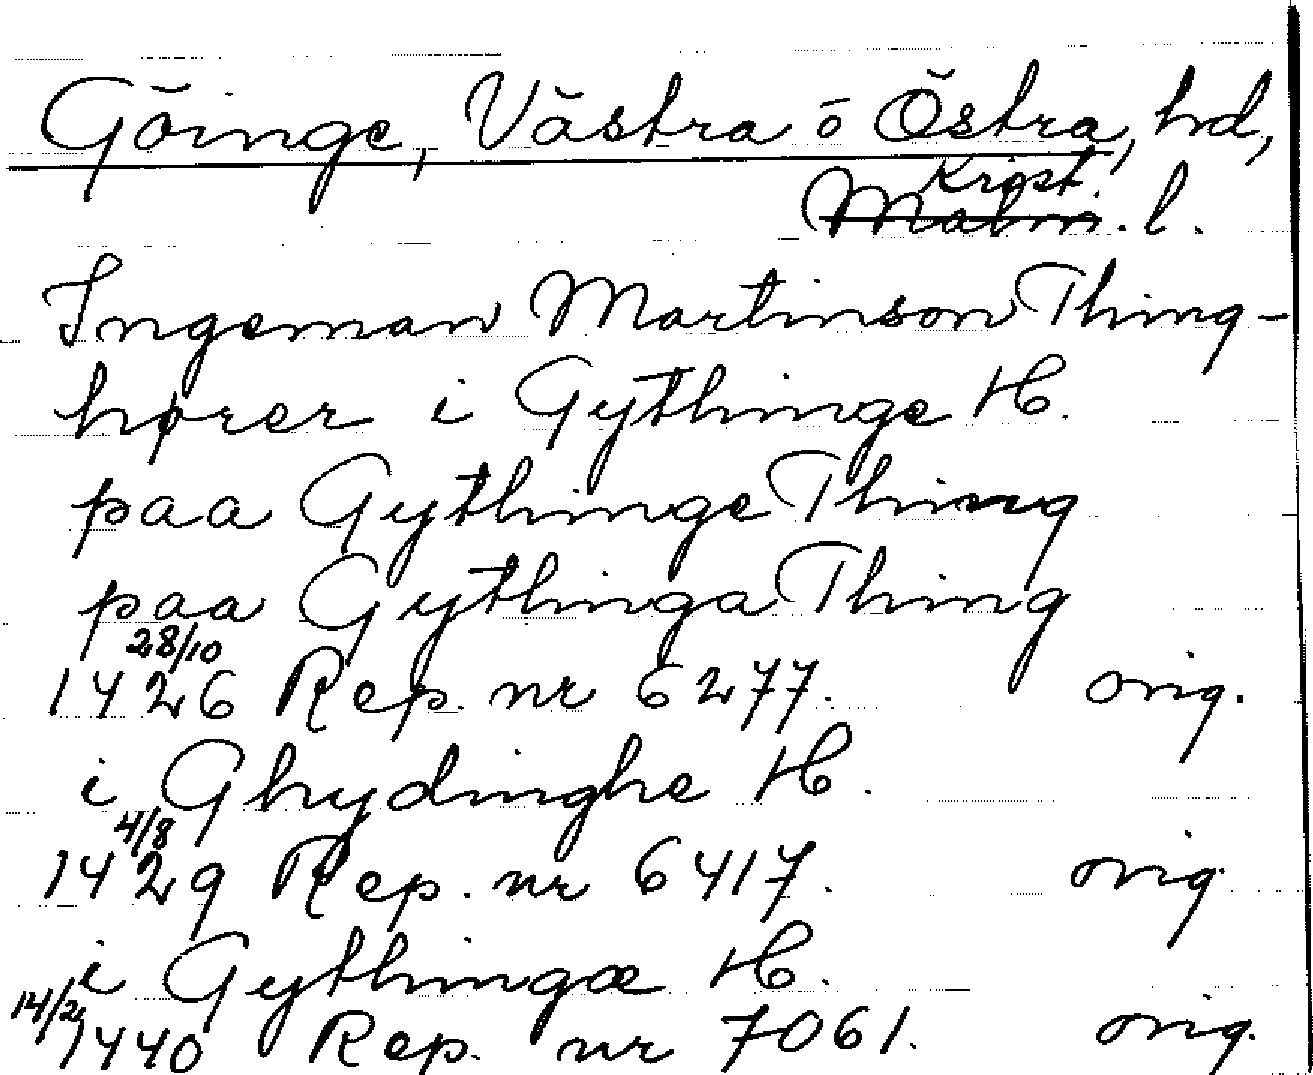 Göinge, Västra o Östra, hd,
Krist.
Malm. l.
Ingeman Martinson Thing-
hører i Gythinge H.
paa Gythinge Thing
paa Gythinga Thing
28/10
1426 Rep. nr 6277. orig.
i Ghydinghe H.
4/8
1429 Rep. nr 6417. orig.
i Gythingæ H.
14/2 1440 Rep. nr 7061. orig.